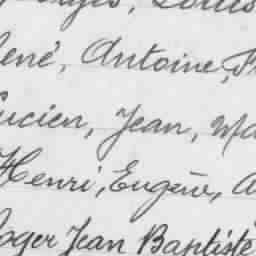 René, Antoine,
Lucien, Jean,
Henri, Eugène,
Roger Jean Baptiste